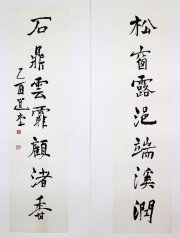 松窗露浥端溪潤
石鼎雲霏顧渚香
乙酉